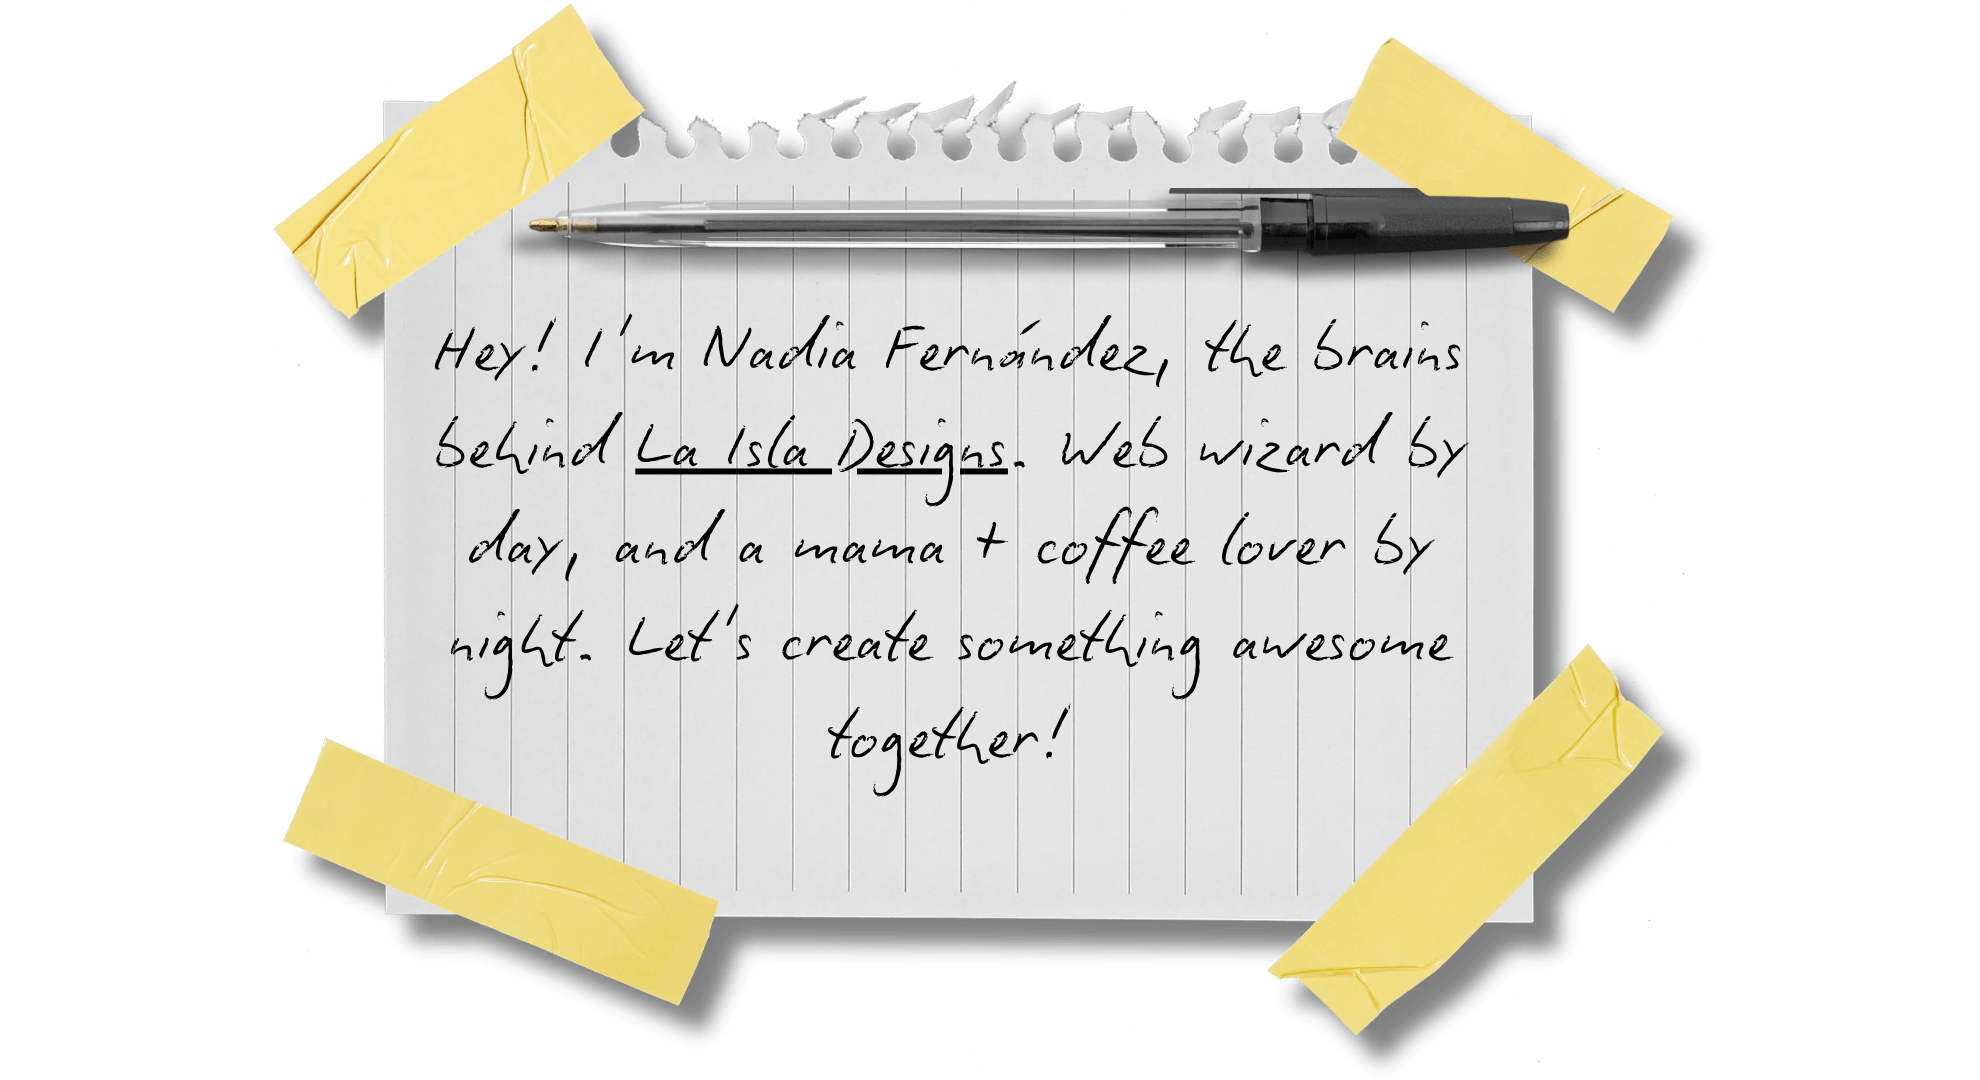 Hey! I'm Nadia Fernández, the brains
behind La Isla Designs. Web wizard by
day, and a mama + coffee lover by
night. Let's create something awesome
together!